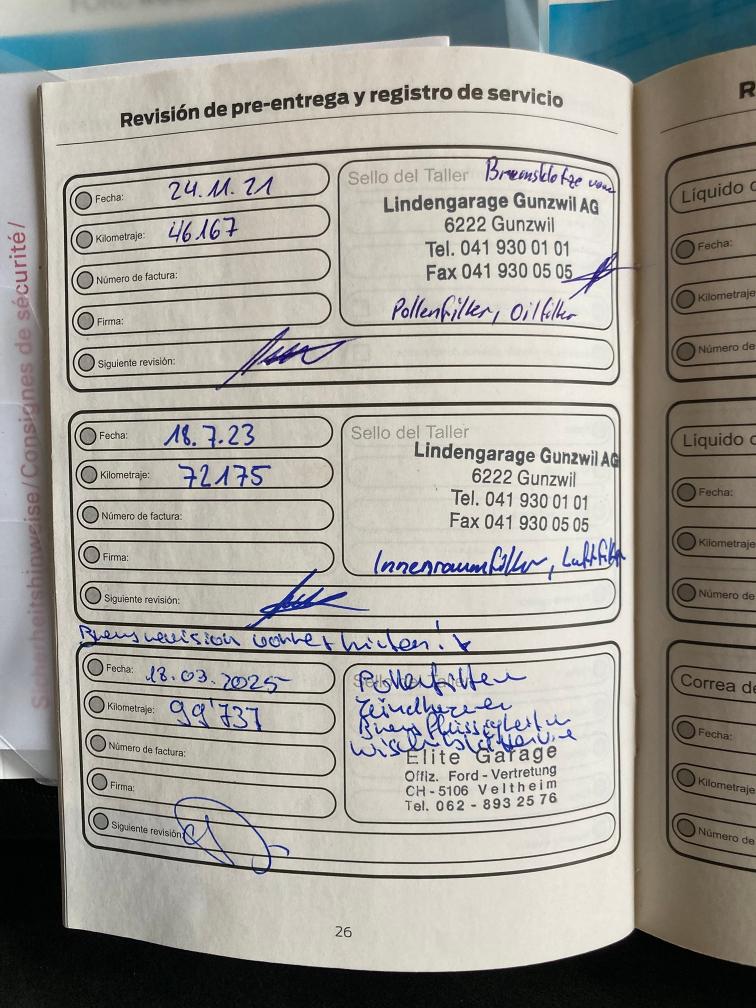 FORD
Revisión de pre-entrega y registro de servicio
Fecha: 24.11.21
Kilometraje: 46167
Número de factura:
Firma:
Siguiente revisión:
Sello del Taller Bremsklötze vorne
Lindengarage Gunzwil AG
6222 Gunzwil
Tel. 041 930 01 01
Fax 041 930 05 05
Pollenfilter, Oilfilter
Fecha: 18.7.23
Kilometraje: 72175
Número de factura:
Firma:
Siguiente revisión:
Sello del Taller
Lindengarage Gunzwil AG
6222 Gunzwil
Tel. 041 930 01 01
Fax 041 930 05 05
Innenraumfilter, Luftfilter
Bremsrevision vorne + hinten!
Fecha: 18.03.2025
Kilometraje: 99'737
Número de factura:
Firma:
Siguiente revisión:
Pollenfilter
Zündkerzen
Bremsflüssigkeit
Elite Garage
Offiz. Ford - Vertretung
CH - 5106 Veltheim
Tel. 062 - 893 25 76
26
Sicherheitshinweise/Consignes de sécurité/
R
Líquido
Fecha:
Kilometraje
Número de
Líquido
Fecha:
Kilometraje
Número de
Correa de
Fecha:
Kilometraje
Número de